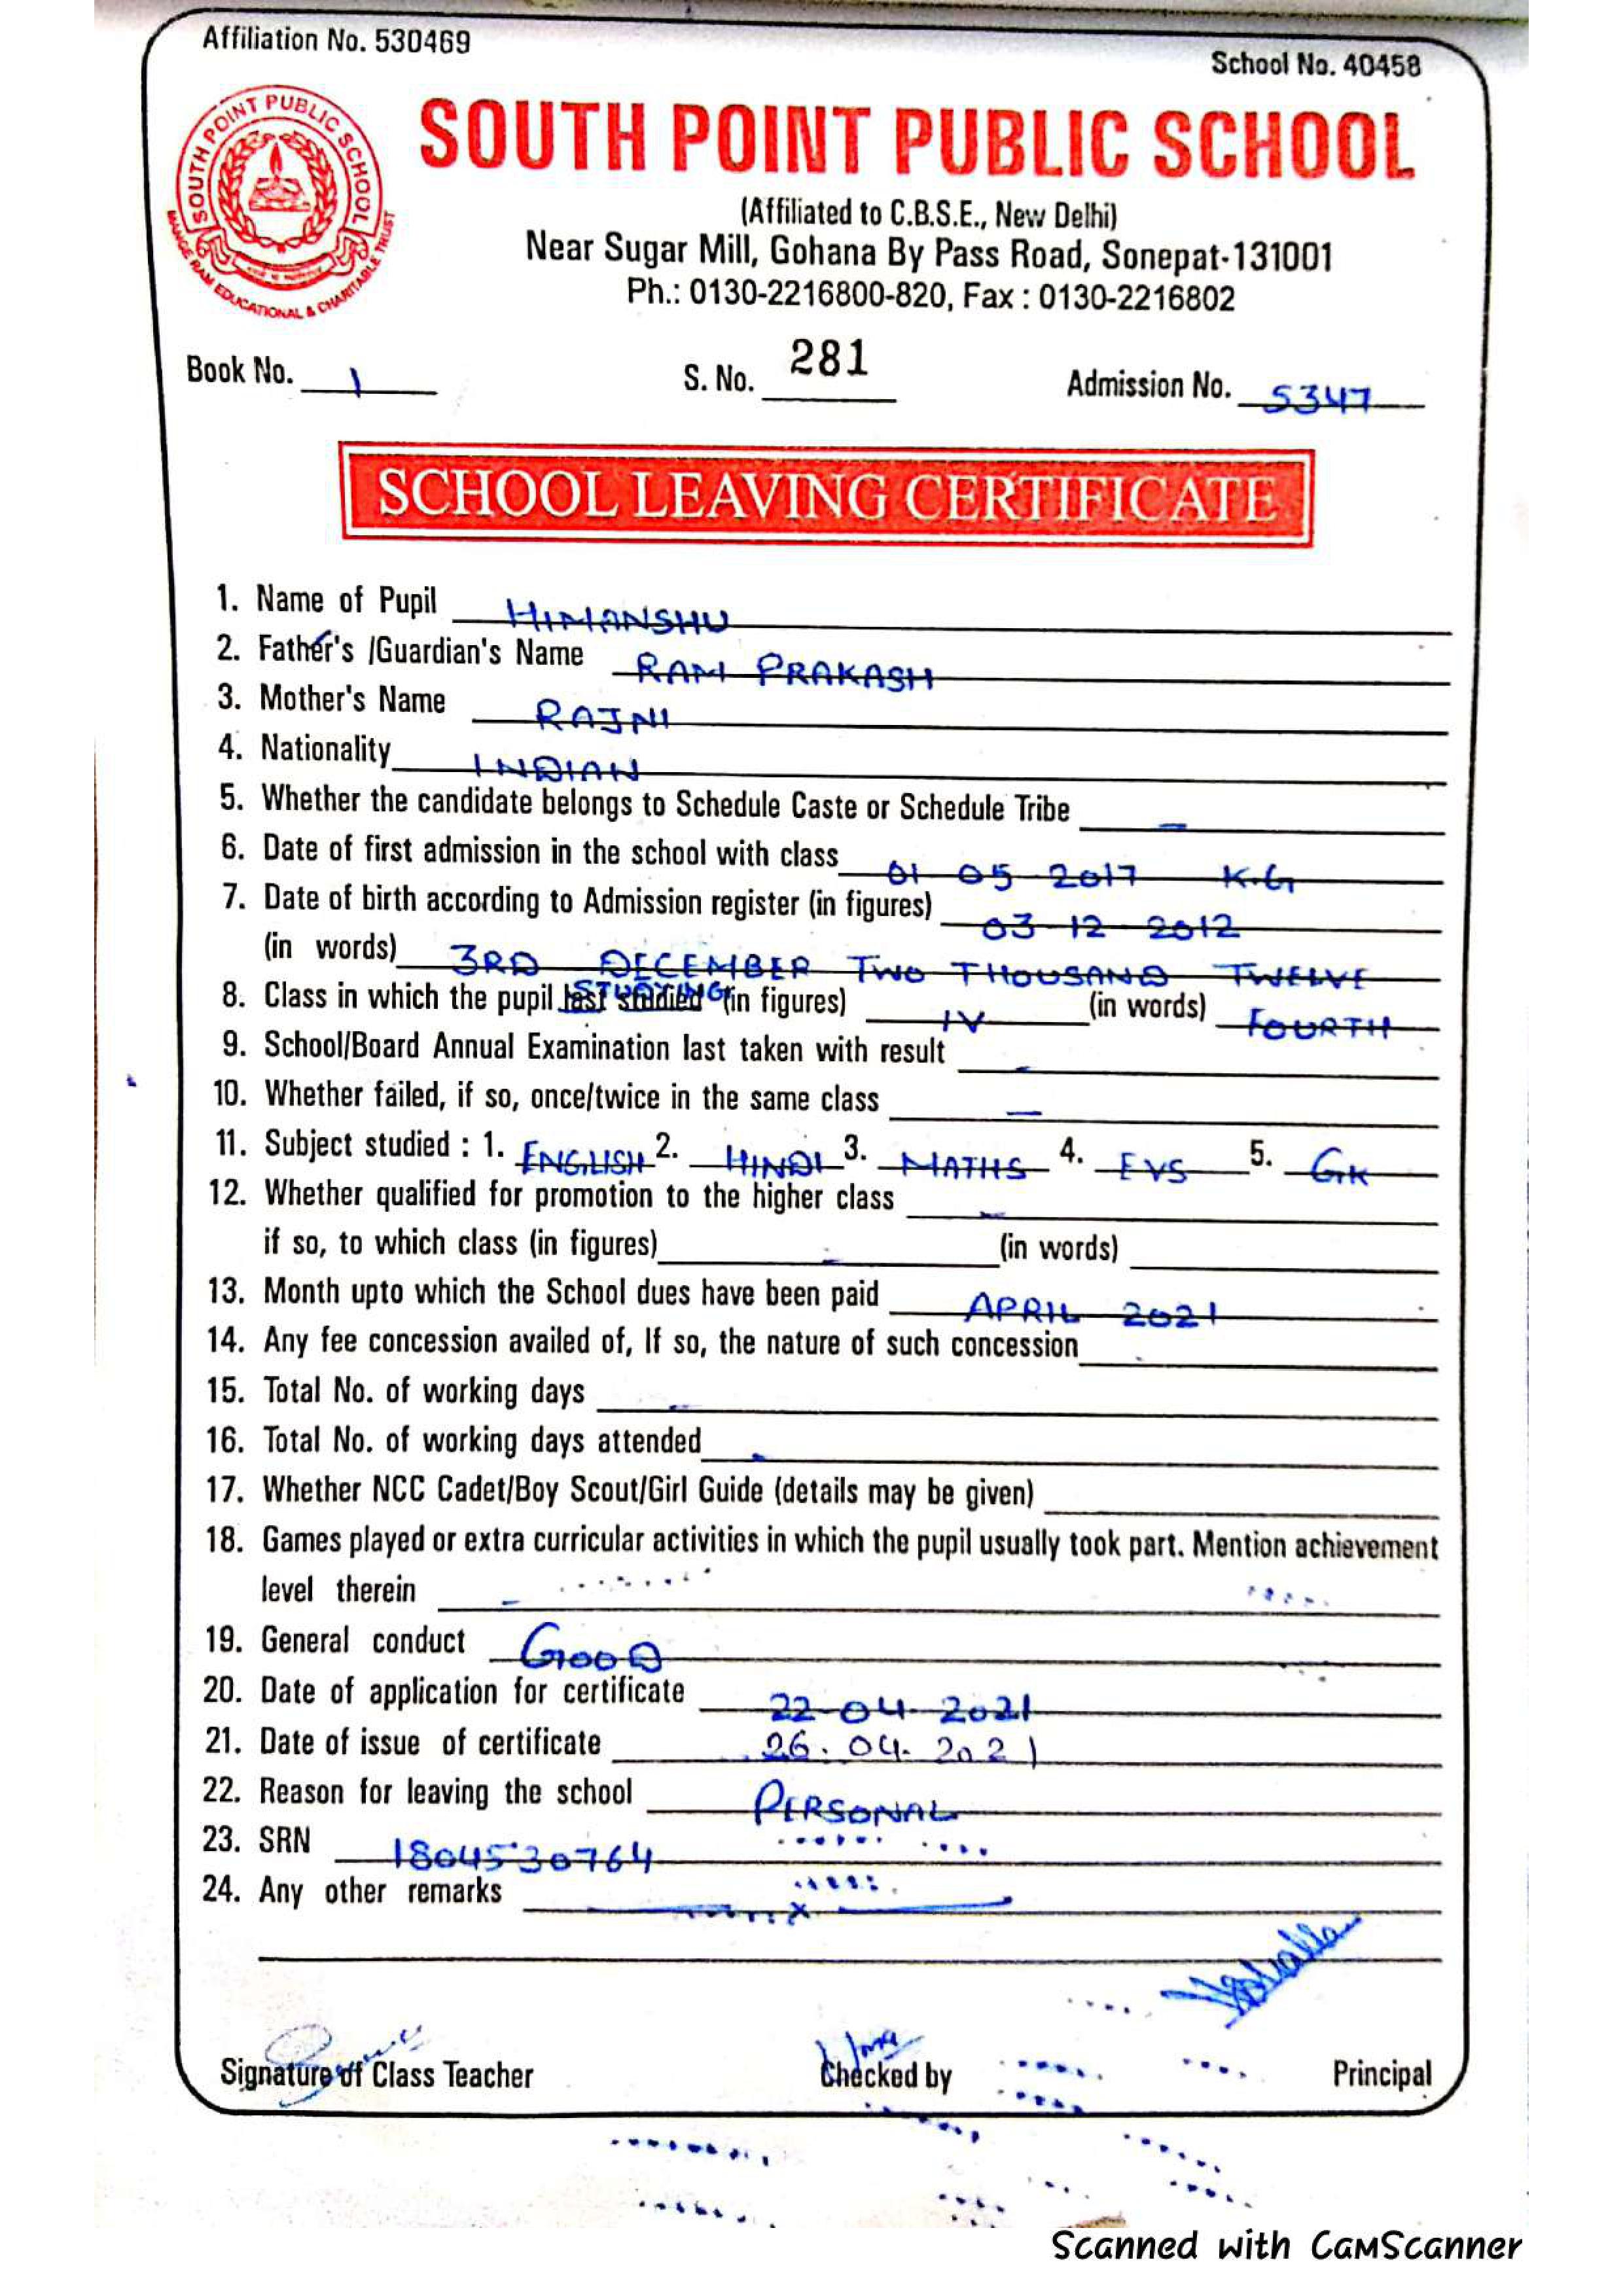 Affiliation No. 530469
School No. 40458
SOUTH POINT PUBLIC SCHOOL
MANGE RAM EDUCATIONAL & CHARITABLE TRUST
SOUTH POINT PUBLIC SCHOOL
(Affiliated to C.B.S.E., New Delhi)
Near Sugar Mill, Gohana By Pass Road, Sonepat-131001
Ph.: 0130-2216800-820, Fax : 0130-2216802
Book No. 1 S. No. 281 Admission No. 5347
SCHOOL LEAVING CERTIFICATE
1. Name of Pupil HIMANSHU
2. Father's /Guardian's Name RAM PRAKASH
3. Mother's Name RAJNI
4. Nationality INDIAN
5. Whether the candidate belongs to Schedule Caste or Schedule Tribe —
6. Date of first admission in the school with class 01 05 2017 K.G
7. Date of birth according to Admission register (in figures) 03-12-2012
(in words) 3RD DECEMBER TWO THOUSAND TWELVE
8. Class in which the pupil last studied STUDYING (in figures) IV (in words) FOURTH
9. School/Board Annual Examination last taken with result -
10. Whether failed, if so, once/twice in the same class —
11. Subject studied : 1. ENGLISH 2. HINDI 3. MATHS 4. EVS 5. GK
12. Whether qualified for promotion to the higher class -
if so, to which class (in figures) - (in words)
13. Month upto which the School dues have been paid APRIL 2021
14. Any fee concession availed of, If so, the nature of such concession
15. Total No. of working days -
16. Total No. of working days attended -
17. Whether NCC Cadet/Boy Scout/Girl Guide (details may be given)
18. Games played or extra curricular activities in which the pupil usually took part. Mention achievement
level therein -
19. General conduct GOOD
20. Date of application for certificate 22-04-2021
21. Date of issue of certificate 26.04.2021
22. Reason for leaving the school PERSONAL
23. SRN 1804530764
24. Any other remarks x
Signature of Class Teacher Checked by Principal
Scanned with CamScanner